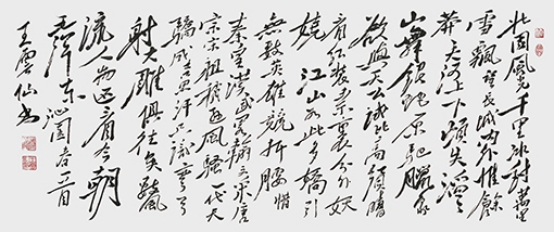 北国風光千里冰封萬里
雪飘望长城内外惟餘
莽大河上下頓失滔
山舞银蛇原驰臘象
欲与天公試比高須晴
看红装素裹分外妖
娆江山如此多嬌引
無數英雄競折腰惜
秦皇漢武略输文采唐
宗宋祖稍逊風骚一代天
骄成吉思汗只識弯弓
射大雕俱往矣數風
流人物还看今朝
毛泽东沁园春一首
王雲仙书